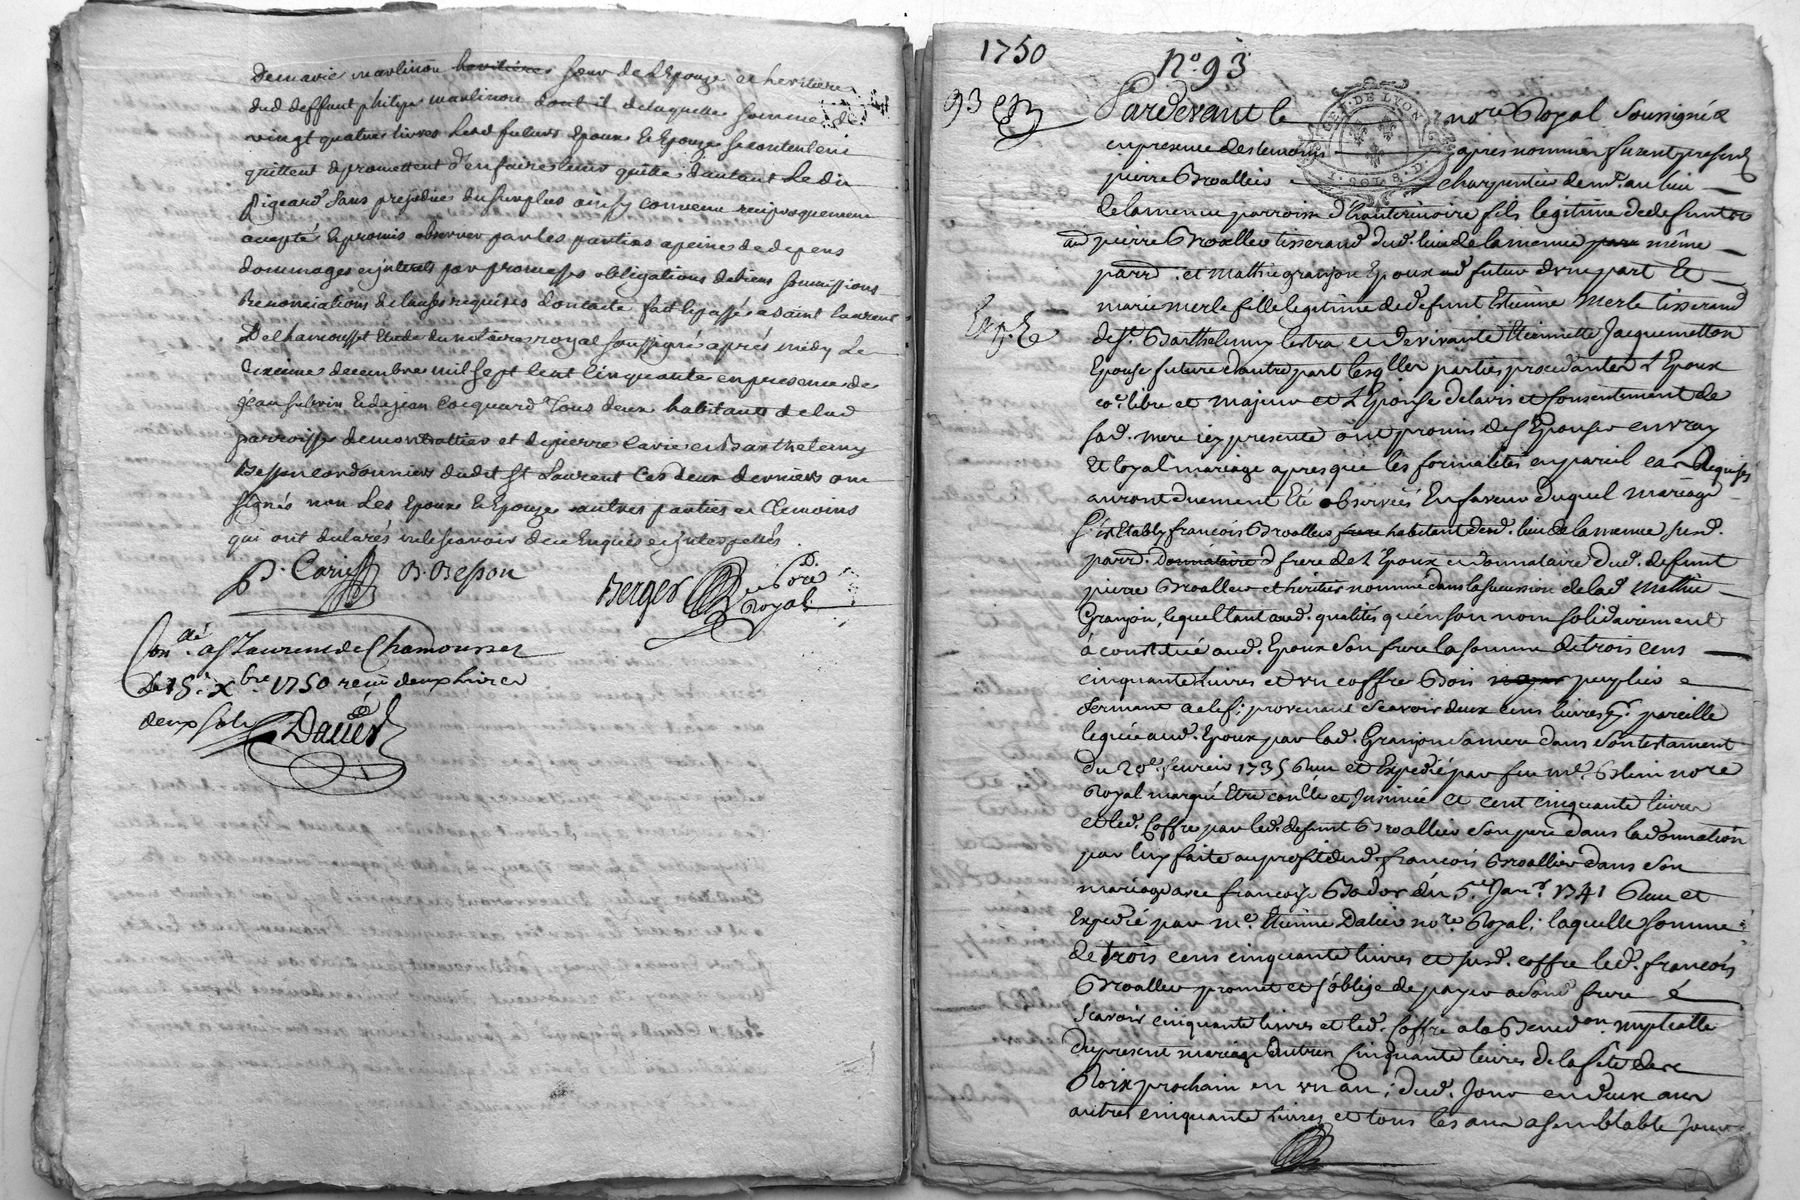 Demarie marlinon heritiere sœur de L'Epouze et heritiere
dud deffunt philipe marlinon dont et delaquelle somme de
vingt quatre livres Lesd futurs Epoux et Epouze se contentent
quittent et promettent d'en faire tenir quitte d'autant Le dit
pigeard Sans prejudice du surplus ainsy convenu reciproquement
accepté Et promis observer par les parties apeine de depens
dommages et jnterets par promesses obligations de biens soumissions
Renonciations et clauses requises dont acte fait et passé a saint laurent
De chamousset Etude du notaire royal soussigné aprés midy Le
decembre mil sept Cent Cinquante en presence de
jean et de jean Cocquard Tous deux habitants de lad
parroisse de montrottier et de pierre Carie et Barthelemy
Besson cordonniers dudit St Laurent Ces deux derniers ont
signés non Les Epoux et Epouze autres parties et temoins
qui ont declarés ne le scavoir de ce Enquis et jnterpellés
P. Carie B. Besson Berger no.re Royal
Con.dé a St Laurent de Chamousset
Le 15.e Xbre. 1750 receu deux Livres
deux sols Dalier
1750 No. 93
93
GEN. DE LYON
1. SOL 8. D.
Pardevant le no.re Royal Soussigné &
en presence des temoins apres nommés furent presents
pierre Broallier charpentier dem.t au lieu
de la menue parroisse d'hauterivoire fils legitime de defunt
pierre Broallier tisserand dud. lieu de la menue par même
parr.d et mathie granjon Epoux aud futur d'une part Et
marie merle fille legitime de defunt Estienne merle tisserand
de St. Barthelemy lestra et de vivante Etiennette Jacquemetton
Expe.
Epouse future d'autre part Lesqlles parties procedantes L'Epoux
co.e libre et majeur et L'Epouse de lavis et Consentement de
sad. mere icy presente ont promis de s'Epouser en vray
Et loyal mariage apres que les formalités en pareil cas Requises
auront duement Eté observées En faveur duquel mariage
s'est Etably francois Broallier frere habitant dud. lieu de la menue susd.
parr.d Donnataire d frere de L'Epoux et donnataire dud. defunt
pierre Broallier et heritier nommé dans la succession de lad mathie
Granjon, lequel tant aud. qualités qu'en son nom solidairement
a constitué aud. Epoux son frere la somme de trois cens
cinquante livres et un coffre Bois noyer peuplier
fermant a clef; provenant scavoir deux cens livres p.r pareille
leguée aud. Epoux par lad. Granjon sa mere dans son testament
du 20.e fevrier 1735 Receu et Expedié par feu m.e Blein no.re
Royal marqué Etre conllé et Insinué et cent cinquante livres
et led. Coffre par led. defunt Broallier son pere dans la donnation
par luy faite au profit dud. francois Broallier dans son
mariage avec francoise Bador du 5.e Jan.r 1741 Receu et
Expedié par M.e Etienne Dalier no.re Royal; laquelle somme
de trois cens cinquante livres et susd. coffre led. francois
Broallier promet et s'oblige de payer a sond frere
Scavoir cinquante livres et led. Coffre a la Bened.on nuptialle
du present mariage Autres Cinquante livres de la fete des
Roix prochain en un an; dud. Jour en deux ans
autres cinquante livres et tous les ans a semblable Jour